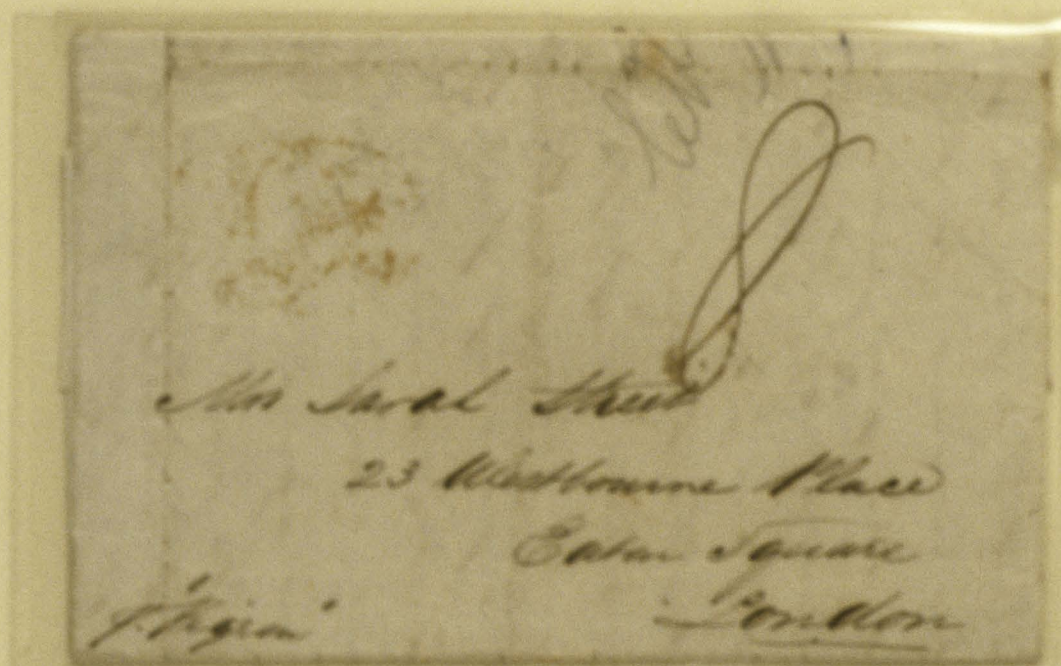 8
Mrs Sarah Street
23 Westbourne Place
Eaton Square
London